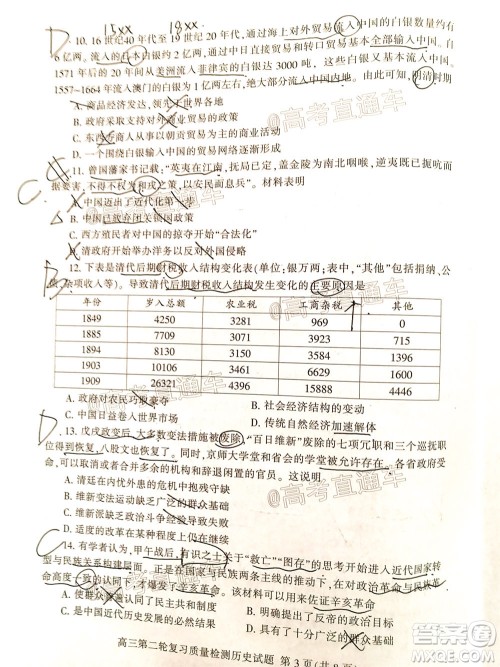 15xx 18xx
D
10. 16世纪40年代至19世纪20年代,通过海上对外贸易流入中国的白银数量约有
6亿两。流入的日本白银约2亿两,经直接贸易和转口贸易基本全部输入中国。自
1571年后的20年间从美洲流入菲律宾的白银达3000吨,
1557~1664年流入澳门的白银1万两左右,绝大部分流入中国内地。由此可知,明清时期
A. 商品经济发达,领先于世界各地
B. 政府采取支持对外商业贸易的政策
C. 东西方商人以朝贡贸易开展商业交往
D. 一个围绕白银的贸易网络逐渐形成
C
11. 曾国藩家书记载:“英夷在江南,抚局已定,盖金陵为南北咽喉,逆夷既已扼吭而
据要害,不得不权为和戎之策,以安民而息兵”。材料表明
A. 中国迈出了近代化第一步
B. 中国已放弃闭关锁国政策
C. 西方殖民者对中国的掠夺开始“合法化”
D. 清政府开始举办洋务以对抗外国侵略
B
12. 下表是清代后期财税收入结构变化表(单位:银万两;表中,“其他”包括捐纳、公
杂项收入等)。导致清代后期财税收入结构发生变化的主要原因是
年份 岁入总额 农业税 工商杂税 其他
1849 4250 3281 969 0
1885 7709 3071 3942 695
1894 8114 3281 4235 598
1903 9221 3701 4310 1210
1909 26321 4396 15888 4446
A. 政府对农民巧取豪夺 B. 社会经济结构的变动
C. 中国日益卷入世界市场 D. 传统经济加速解体
D
13. 戊戌政变后,大多数变法措施被废除,“百日维新”废除的七项冗职和三个巡抚职
位得到恢复,八股文也恢复了。然而,京师大学堂和省会的学堂被允许存在。各省政府受
命,可以取消或者进行经济和军事改革,甚至可以辞退多余的官员。这说明
A. 清廷在内外忧患的危机中抱残守缺
B. 维新变法运动缺乏群众基础
C. 维新派缺乏政治斗争经验导致变法失败
D. 适度的改革在戊戌政变后仍在继续
C
14. 有学者认为,甲午战后,有识之士关于“救亡”“图存”的思考开始进入近代国家转
型与民族关系构建层面。正是在国家与民族两条主线的推动下,在对政治革命与民族革
命高度一致的认同下,才迸发出了辛亥革命。这一观点有助于佐证辛亥革命
A. 使群众普遍认同了民主共和
C. 是中国近代历史发展的必然结果
高三第二轮复习质量检测历史试题 第3页(共8页)